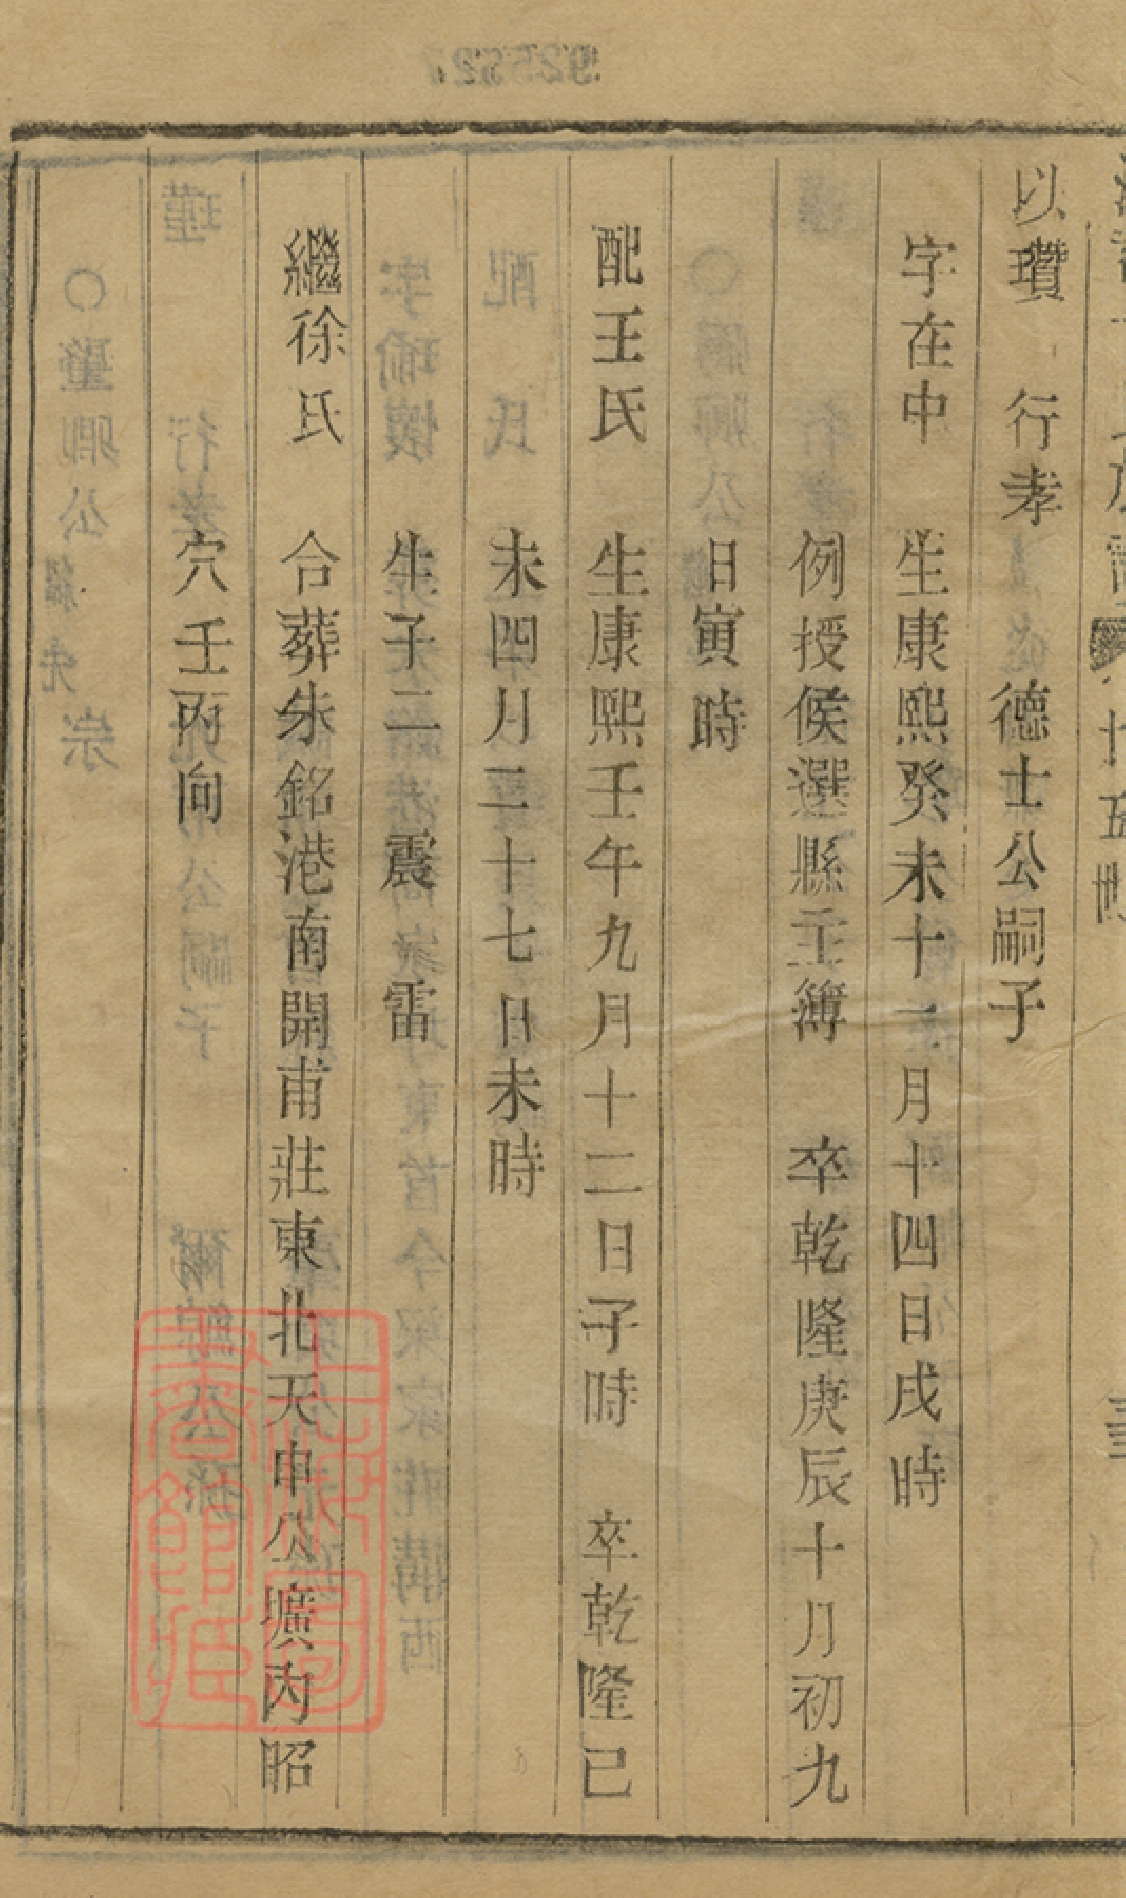 以瓚 行孝 德士公嗣子
字在中 生康熙癸未十一月十四日戌時
例授候選縣主簿 卒乾隆庚辰十月初九
日寅時
配王氏 生康熙壬午九月十二日子時 卒乾隆已
未四月二十七日未時
生子二 震 雷
繼徐氏 合葬朱銘港南開甫莊東北天申公壙內昭
穴壬丙向